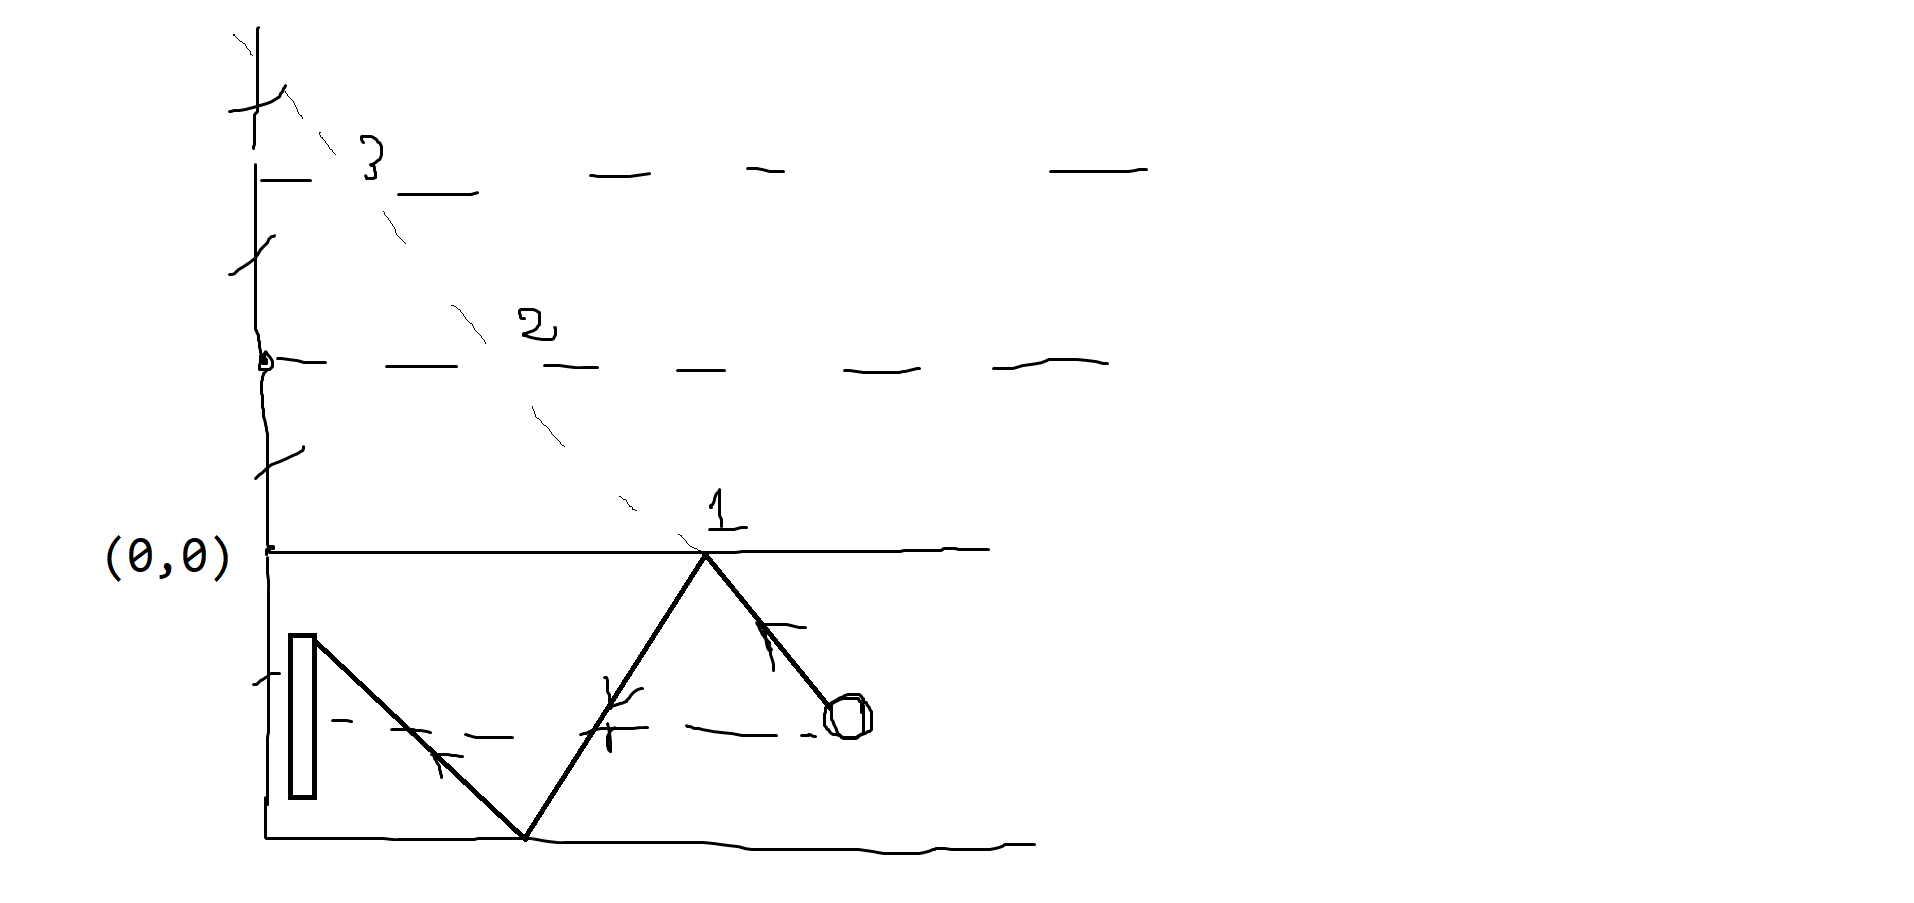 3
2
1
(0,0)